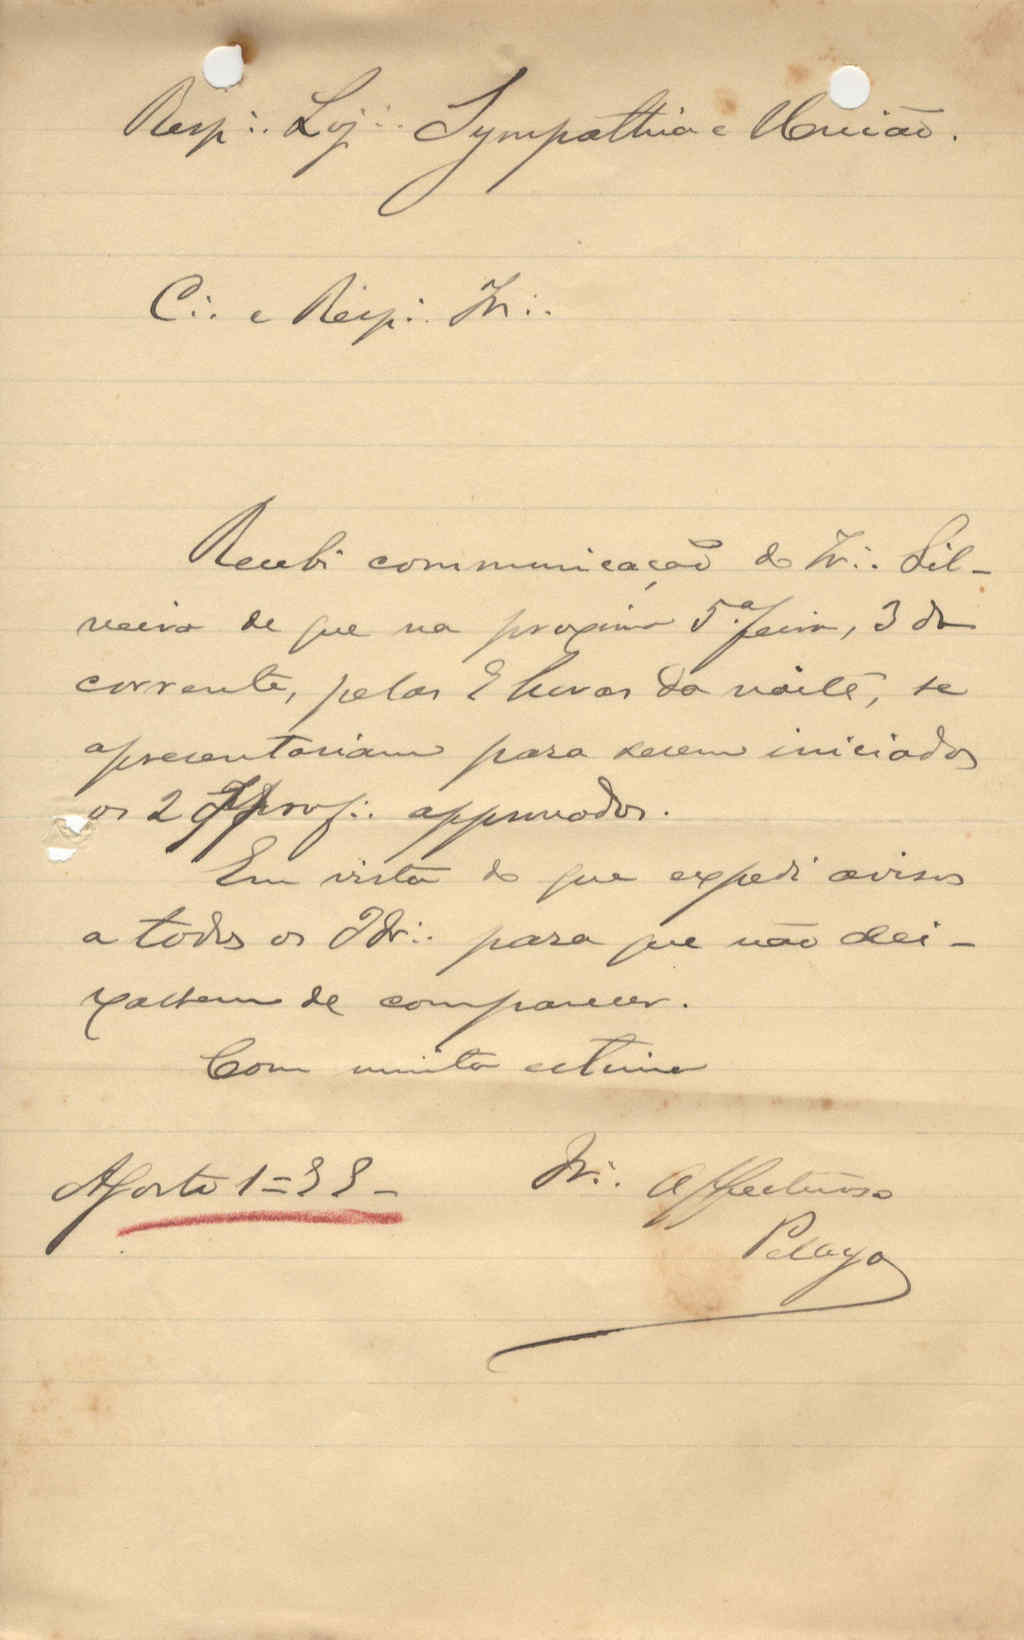 Resp∴ Loj∴ Sympathia e União.
C∴ e Resp∴ Ir∴
Recebi communicação do Ir∴ Sil-
veira de que na proxima 5.ª feira, 3 do
corrente, pelas 8 horas da noite, se
apresentariam para serem iniciados
os 2 Prof∴ approvados.
Em vista do que expedi avisos
a todos os IIr∴ para que não dei-
xassem de comparecer.
Com muita estima
Agosto 1=99-
Ir∴ affectuoso
Pelayo